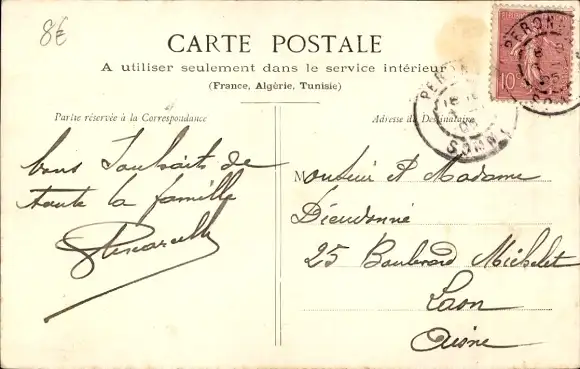 8€
CARTE POSTALE
A utiliser seulement dans le service intérieur
(France, Algérie, Tunisie)
Partie réservée à la Correspondance
Adresse du Destinataire
PERONNE
SOMME
10
Bons Souhaits de
toute la famille
Monsieur et Madame
Dieudonné
25 Boulevard Michelet
Laon
Aisne